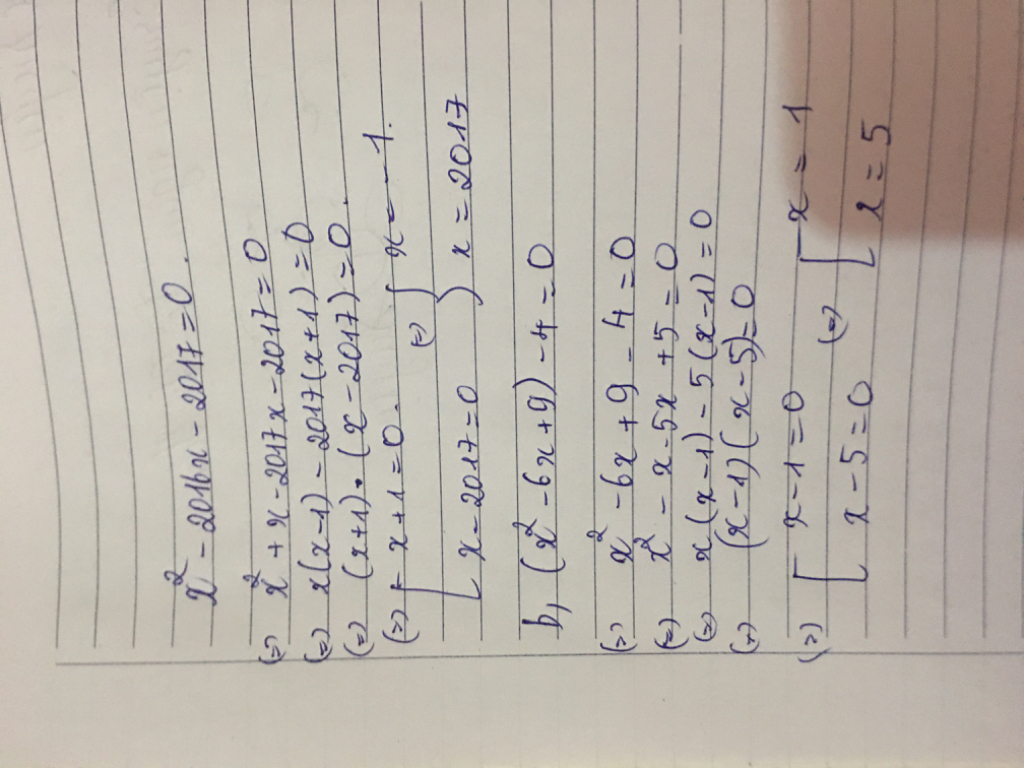 x² - 2016x - 2017 = 0.
(=) x² + x - 2017x - 2017 = 0
(=) x(x-1) - 2017(x+1) = 0
(=) (x+1).(x-2017) = 0.
(=) [ x+1 = 0. (=) [ x = -1.
[ x - 2017 = 0 ) x = 2017
b, (x² - 6x + 9) - 4 = 0
(=) x² - 6x + 9 - 4 = 0
(=) x² - x - 5x + 5 = 0
(=) x(x-1) - 5(x-1) = 0
(=) (x-1)(x-5) = 0
(=) [ x-1 = 0 (=) [ x = 1
[ x - 5 = 0 [ x = 5